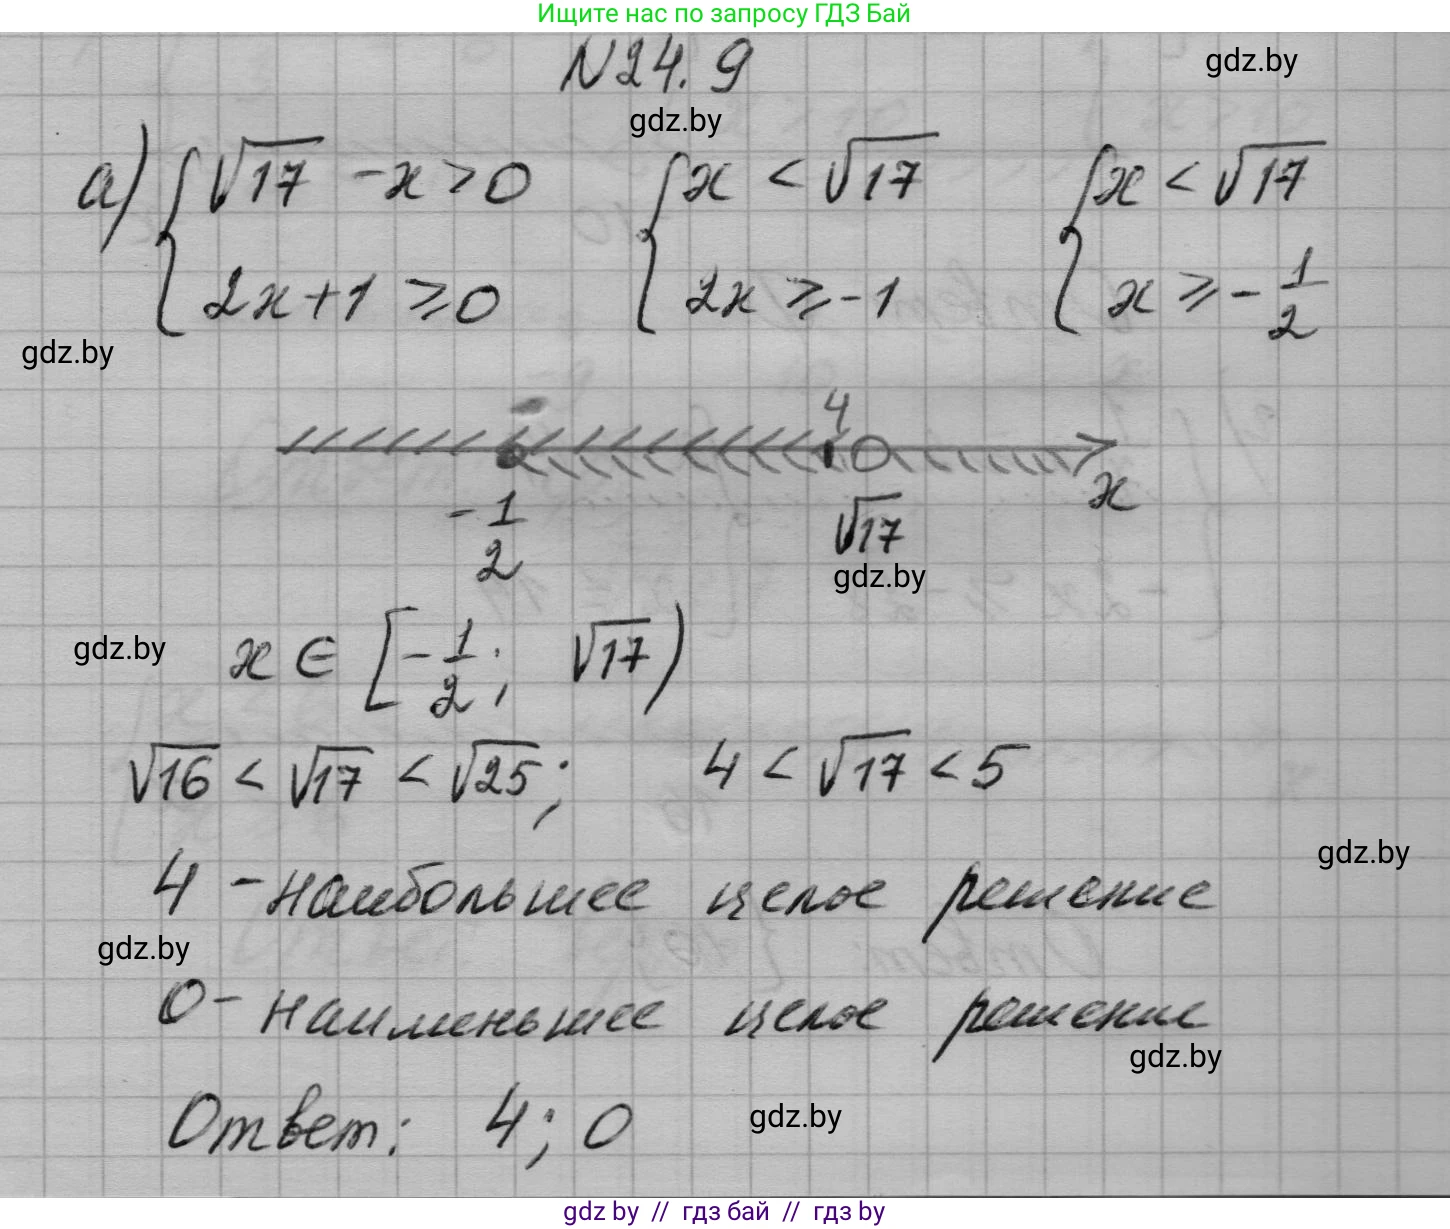 Ищите нас по запросу ГДЗ Бай
N24.9
gdz.by
gdz.by
а) { √17 - x > 0 { x < √17 { x < √17
2x+1 ⩾ 0 2x ⩾ -1 x ⩾ -1/2
gdz.by
4
-1/2 √17 x
gdz.by
gdz.by
x ∈ [-1/2; √17)
√16 < √17 < √25; 4 < √17 < 5
gdz.by
4 - наибольшее целое решение
gdz.by
0 - наименьшее целое решение
gdz.by
Ответ: 4; 0
gdz.by
gdz by // гдз бай // гдз by